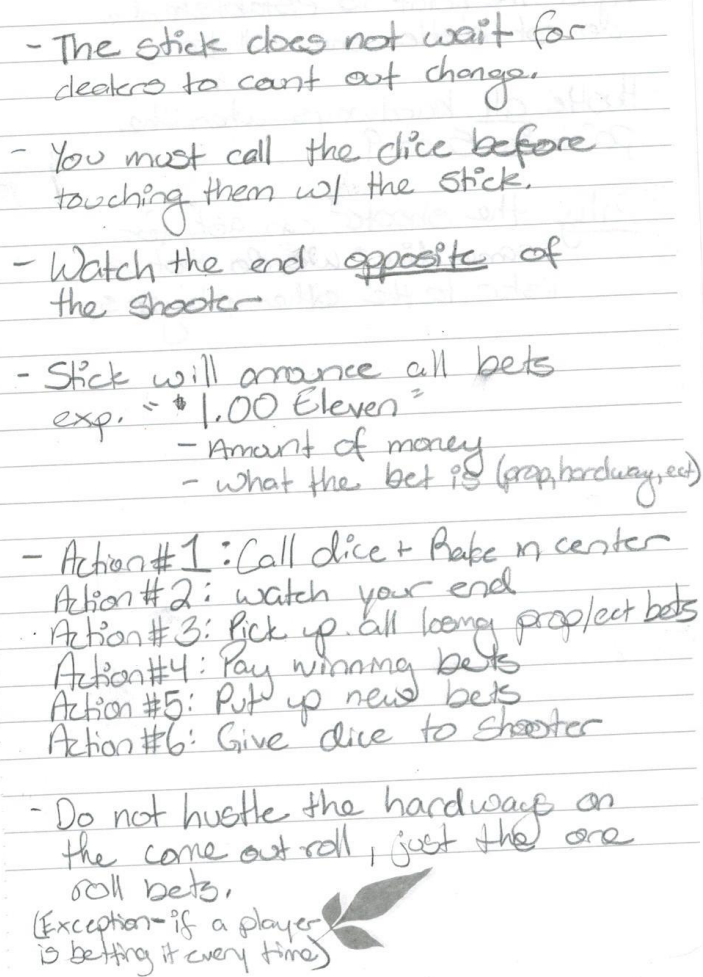 - The stick does not wait for
dealers to count out change.
- You must call the dice before
touching them w/ the stick.
- Watch the end opposite of
the shooter
- Stick will announce all bets
exp. "$1.00 Eleven"
- Amount of money
- what the bet is (prop, hardway, ect)
- Action #1: Call dice + Rake in center
Action #2: watch your end
Action #3: Pick up all losing prop/ect bets
Action #4: Pay winning bets
Action #5: Put up new bets
Action #6: Give dice to shooter
- Do not hustle the hardways on
the come out roll, just the one
roll bets.
(Exception - if a player
is betting it every time)